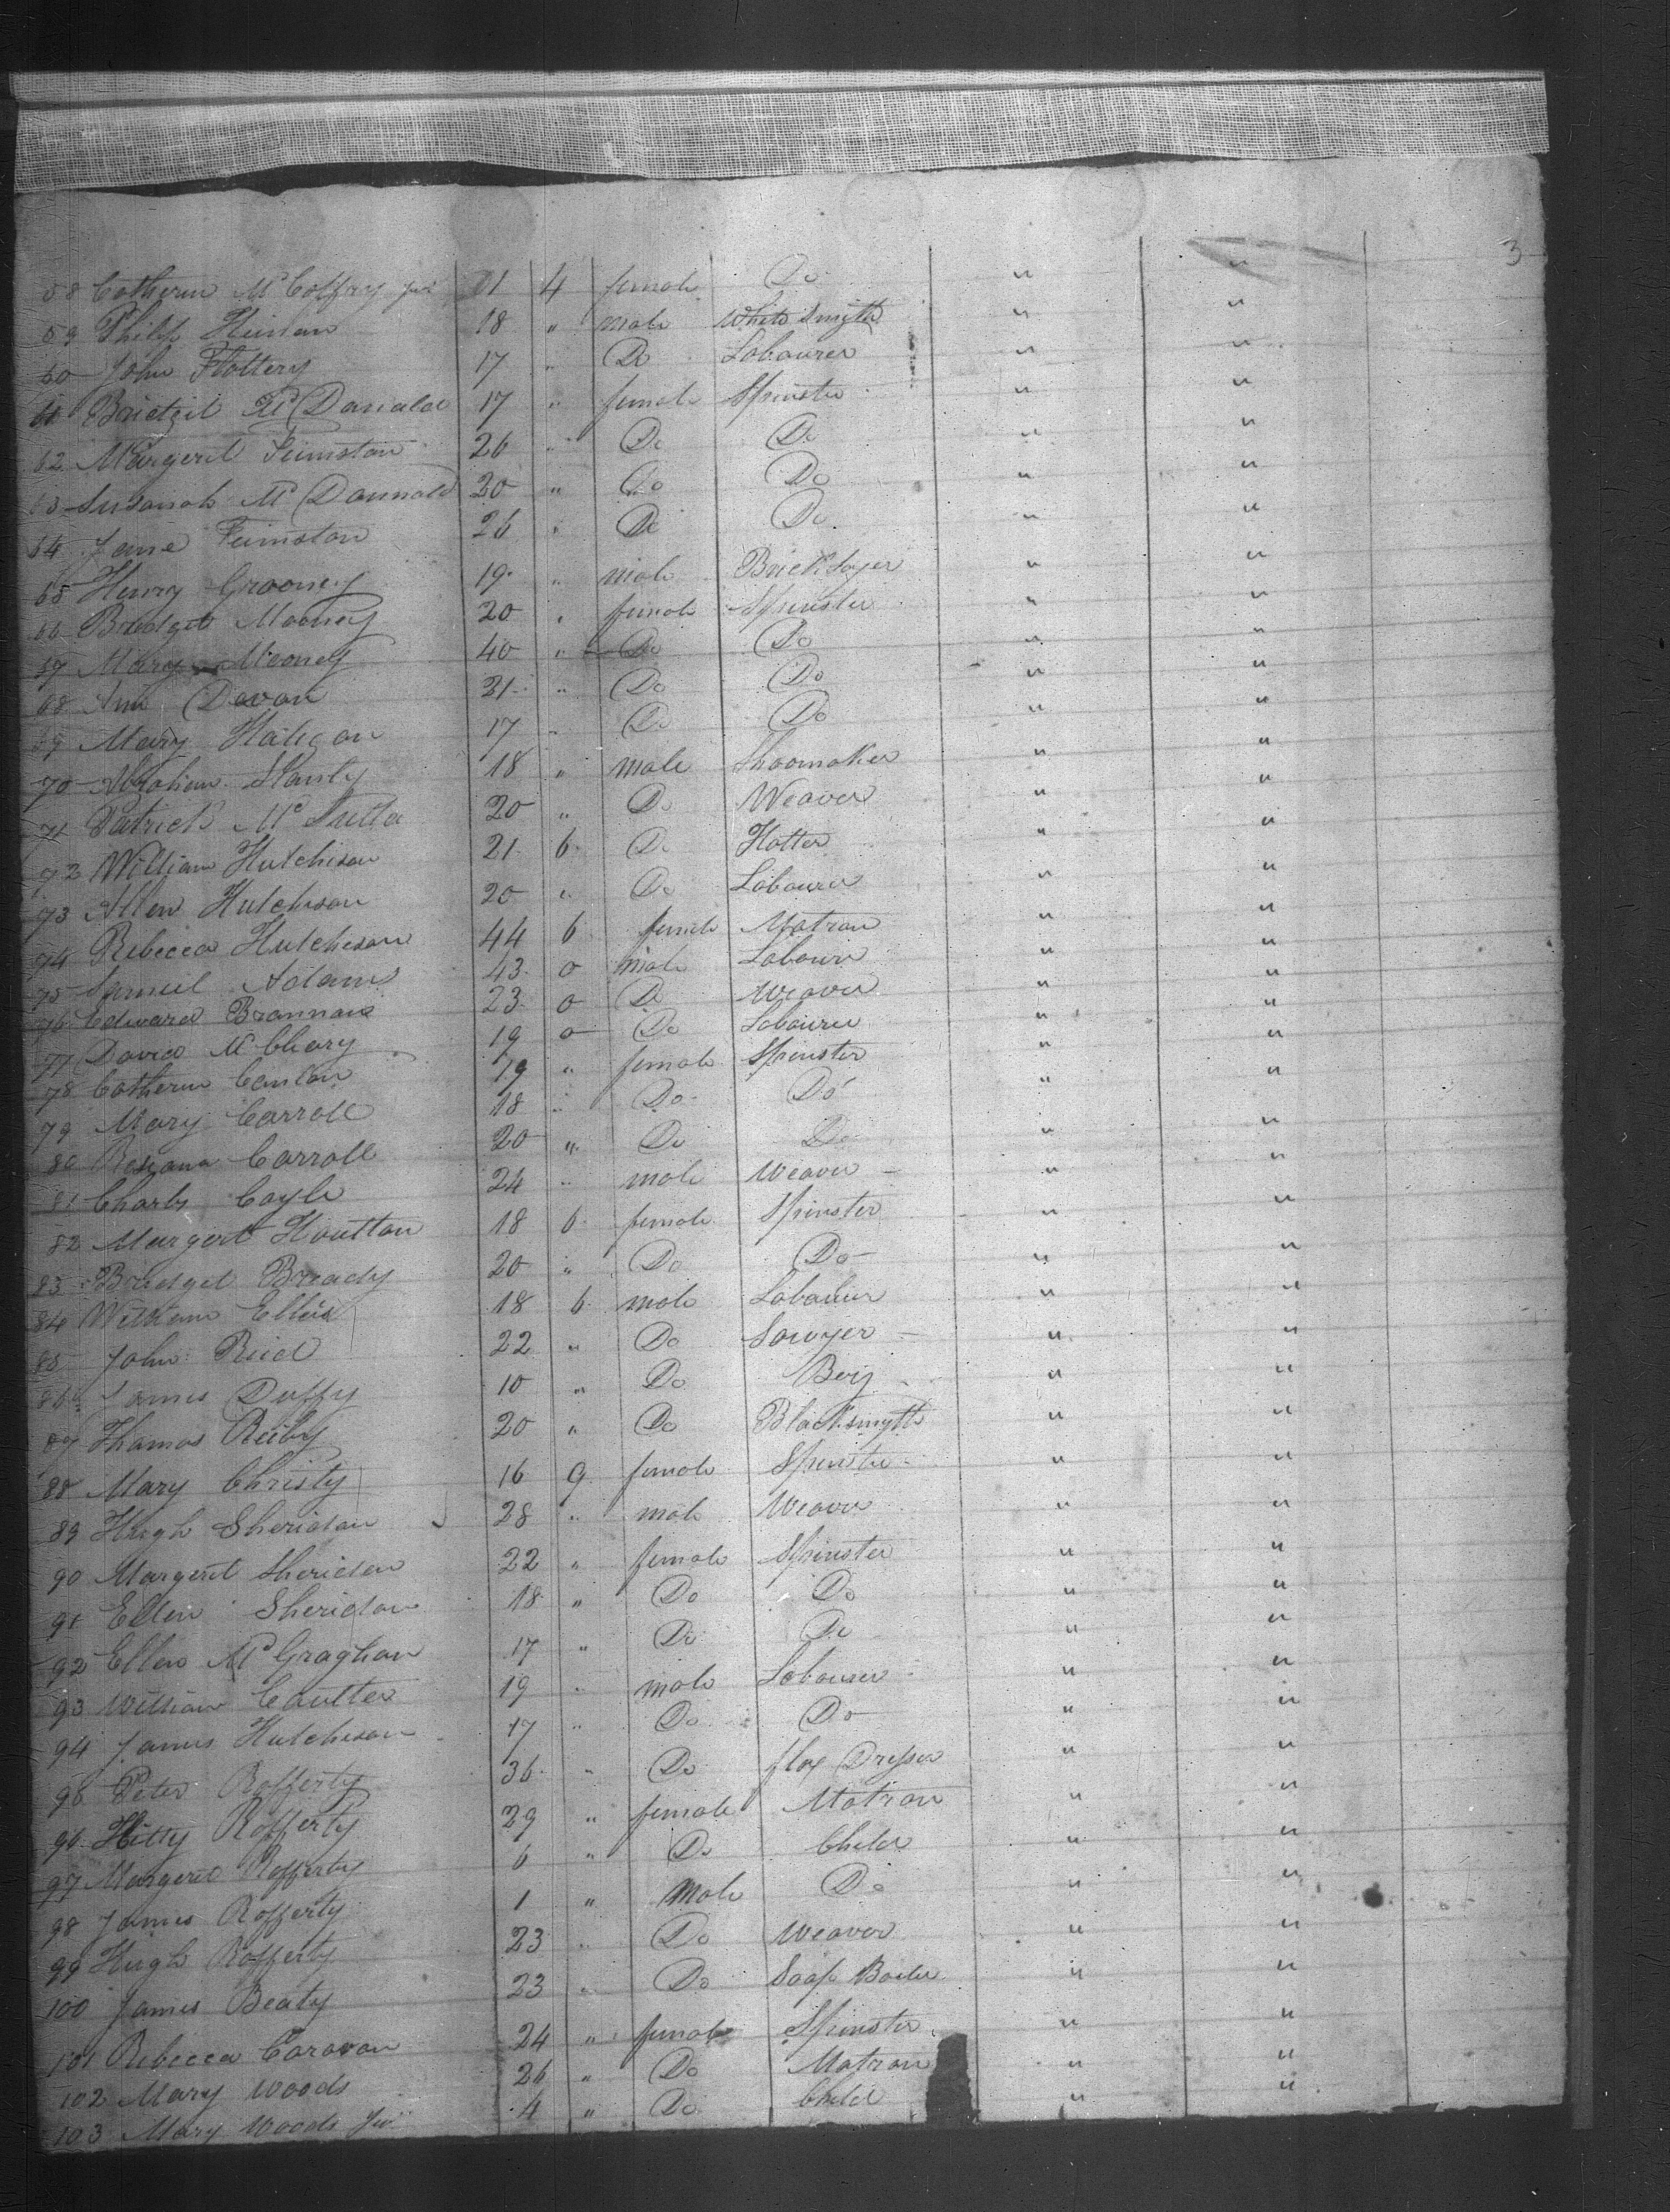 3
58 Catherin McCoffry Jur 01 4 female Do " "
59 Philip Heinan 18 " male White Smyth " "
60 John Flattery 17 " Do Labourer " "
61 Bridget McDanald 17 " female Spinster " "
62 Margeret Fumston 26 " Do Do " "
63 Susanah McDannald 20 " Do Do " "
64 Jane Fumston 26 " Do Do " "
65 Henry Grooney 19 " male Brick Layer " "
66 Bredget Mooney 20 " female Spinster " "
67 Mary Mooney 40 " Do Do " "
68 Ann Davan 21 " Do Do " "
69 Mary Haligan 17 " Do Do " "
70 Abraham Stanly 18 " male Shoomaker " "
71 Patrick Mc 20 " Do Weaver " "
72 William Hutchison 21 6 Do Hatter " "
73 Allen Hutchison 20 " Do Labourer " "
74 Rebecca Hutcheson 44 6 female Matron " "
75 Samuel Adams 43 0 male Labourer " "
76 Edward Brannan 23 0 Do Weaver " "
77 David McCleary 19 0 Do Labourer " "
78 Catherin Canlan 19 " female Spinster " "
79 Mary Carroll 18 " Do Do " "
80 Rosana Carroll 20 " Do Do " "
81 Charls Coyle 24 " male Weaver " "
82 Margeret Houtton 18 6 female Spinster " "
83 Bradget Bready 20 " Do Do " "
84 William Ellis 18 6 male Labaurer " "
85 John Reid 22 " Do Sawyer " "
86 James Duffy 10 " Do Boy " "
87 Thamas Reiby 20 " Do Blacksmyth " "
88 Mary Christy 16 9 female Spinster " "
89 Hugh Sheridan 28 " male Weaver " "
90 Margeret Sheridan 22 " female Spinster " "
91 Ellen Sheridan 18 " Do Do " "
92 Ellen McGraghan 17 " Do Do " "
93 William Coulter 19 " male Labourer " "
94 James Hutcheson 17 " Do Do " "
95 Peter Rafferty 36 " Do flax Dresser " "
96 Kitty Rafferty 29 " female Matron " "
97 Margeret Rafferty 6 " Do Child " "
98 James Rafferty 1 " Male Do " "
99 Hugh Rafferty 23 " Do Weaver " "
100 James Beaty 23 " Do Soap Boiler " "
101 Rebecca Caravan 24 " female Spinster " "
102 Mary Woods 26 " Do Matron " "
103 Mary Woods Jur 4 " Do Child " "